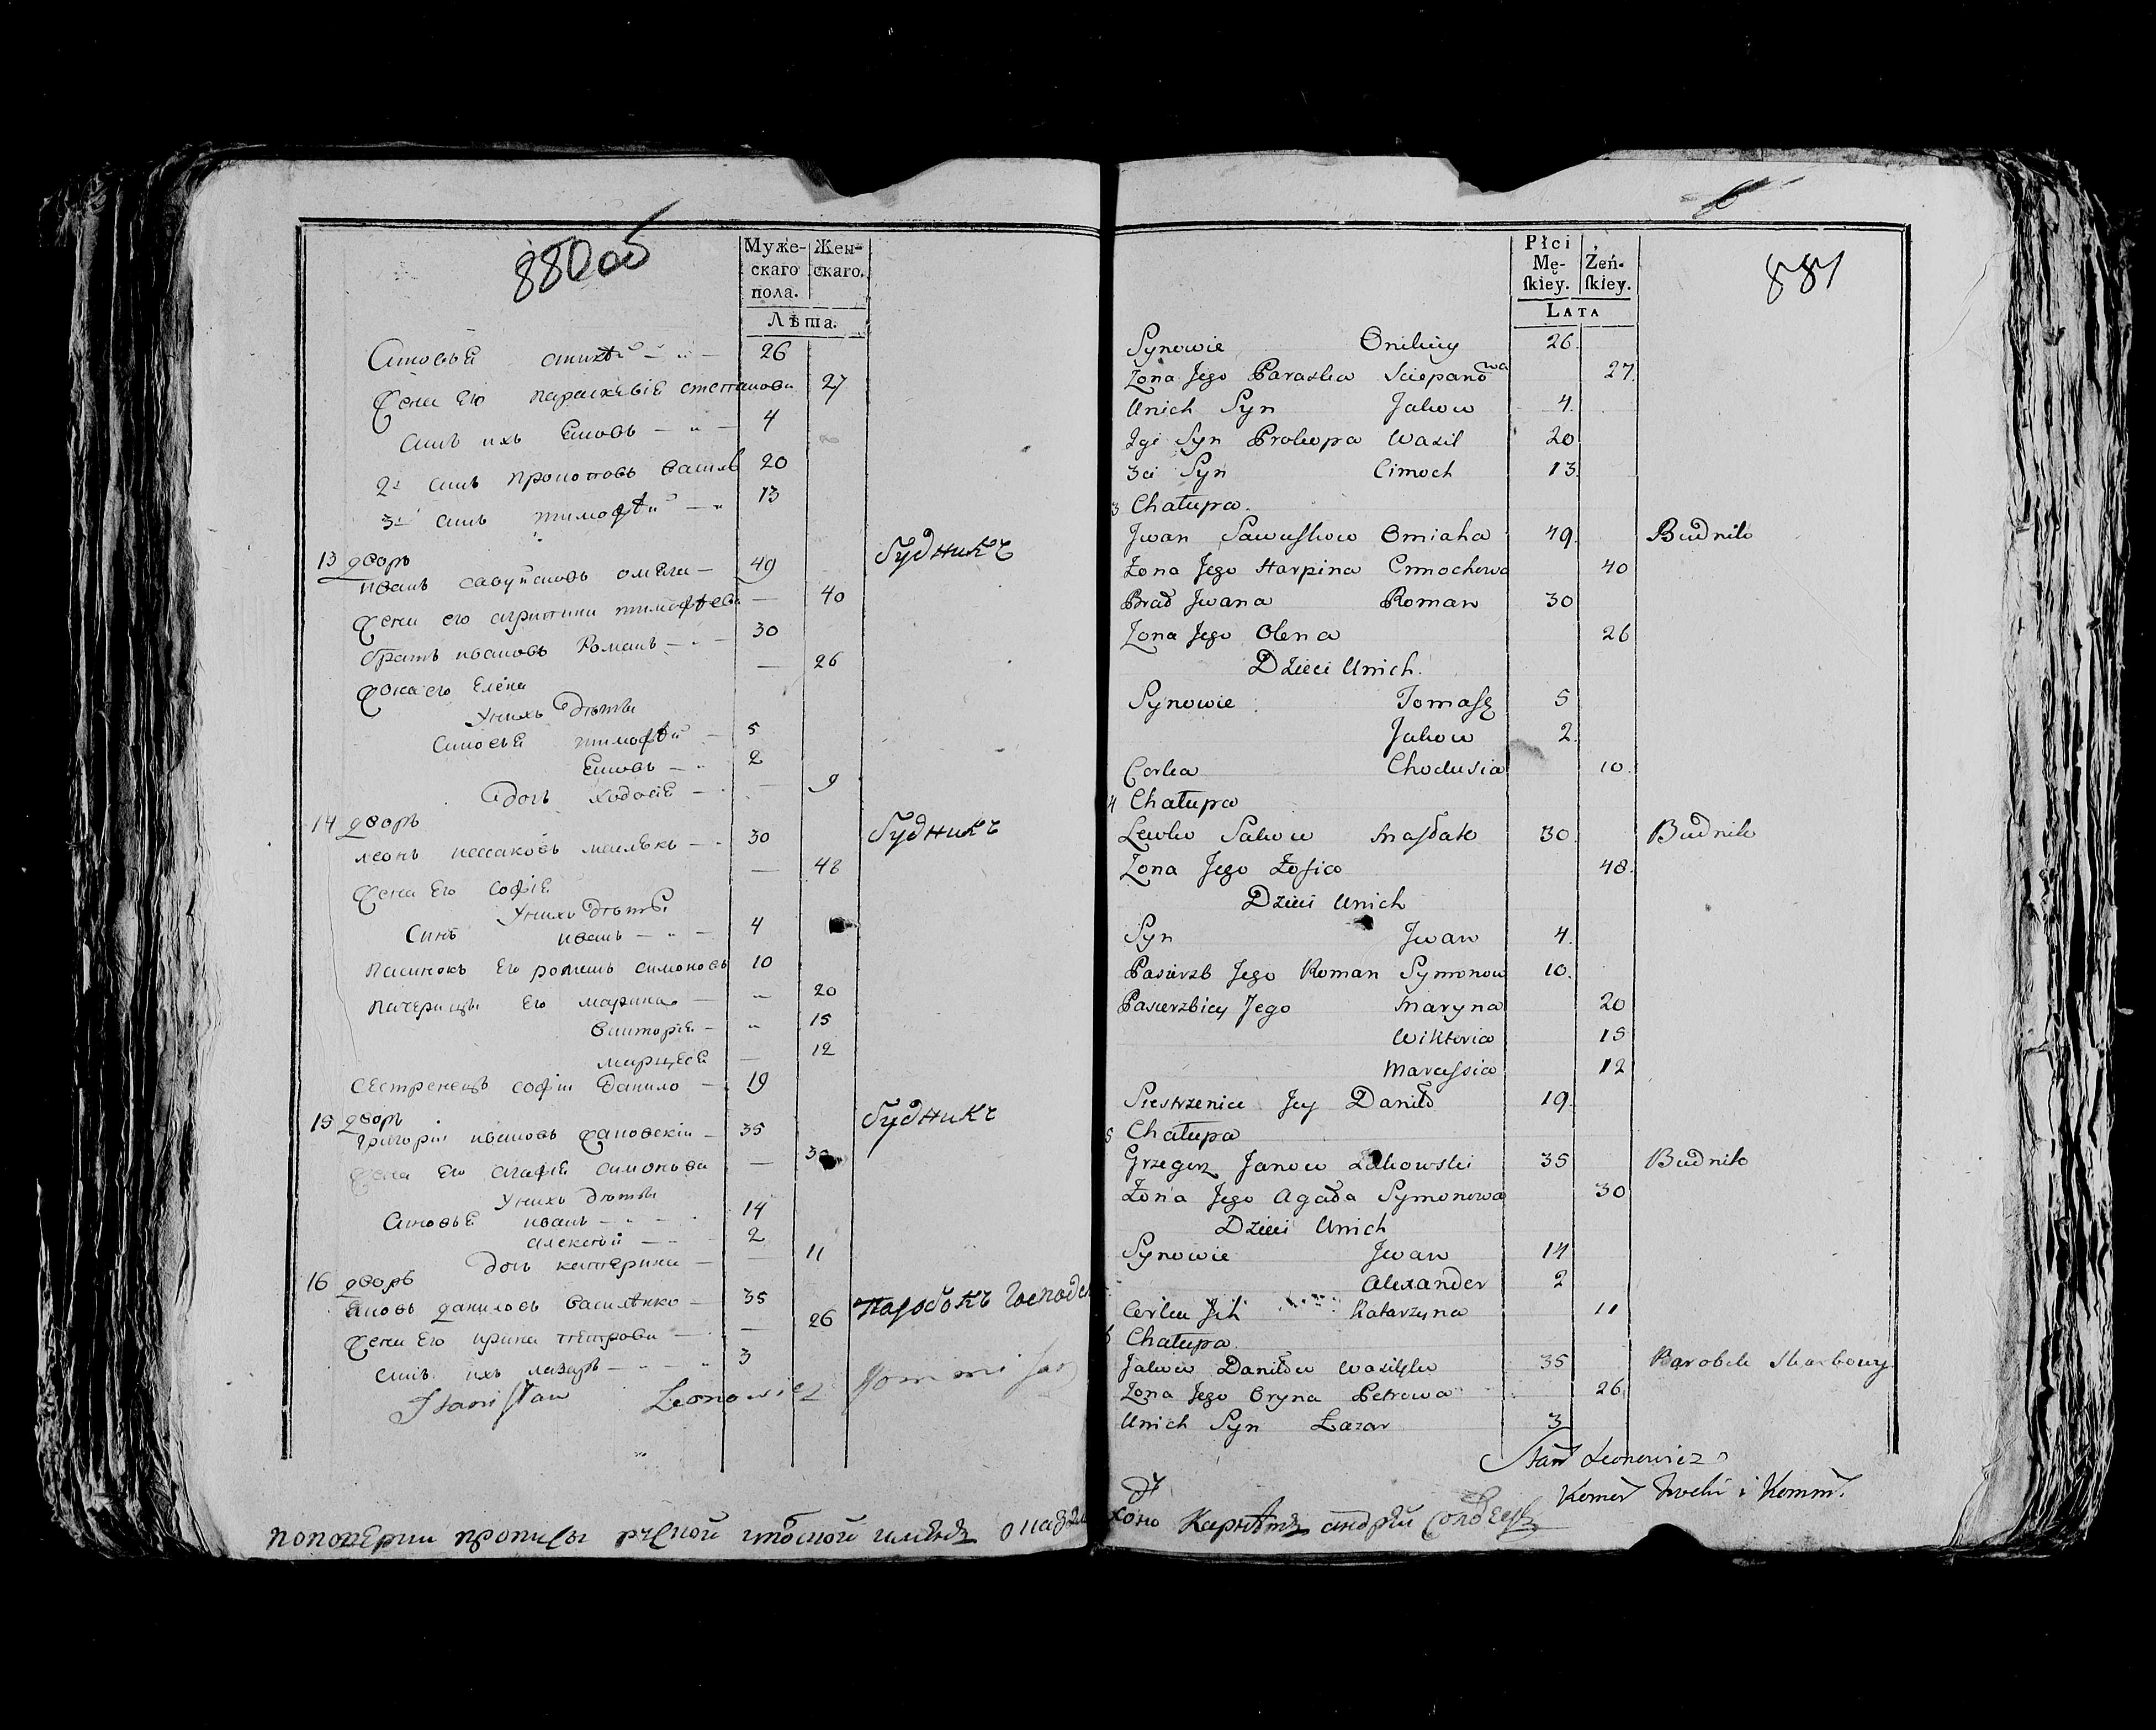 880об
Муже-
скаго
пола.
Жен-
скаго.
Лѣта.
Синовья 26
Жена Его Параскевія Степанова 27
Синъ ихъ Яковъ 4
2й Синъ Прокоповъ Василь 20
3й Синъ Тимофѣй 13
13 дворъ
Иванъ Савуйсковъ Омеля 49 Будникъ
Жена его Агрипина Тимофѣева 40
Братъ Ивановъ Романъ 30
Жона его Елена 26
У нихъ дѣти
Синовья Тимофѣй 5
Яковъ 2
Дочь Ходосія 9
14 дворъ
Леонъ 30 Будникъ
Жена Его Софія 48
У нихъ дѣти
Синъ Иванъ 4
Пасинокъ Его Романъ Симоновъ 10
Пачерицы Его Марина 20
Викторія 15
12
Сестренецъ Софіи Данило 19
15 дворъ
Григорій Ивановъ 35 Будникъ
Жена Его Агафія Симонова 30
У нихъ дѣти
Синовья Иванъ 14
Алексѣй 2
Дочь Катерина 11
16 дворъ
Яковъ Даниловъ Василько 35 Паробокъ
Жена Его Ирина Петрова 26
Синъ ихъ Лазаръ 3
Stanisław Leonowicz Kommisarz
881
Płci
Mę-
ſkiey.
Żeń-
ſkiey.
LATA
Synowie 26.
Zona Jego Paraska Sciepanowa 27.
Unich Syn Jakow 4.
2gi Syn Prokopa Wasil 20
3ci Syn Cimoch 13.
3 Chałupa.
Jwan Sawuskow Omiaha 49. Budnik
Zona Jego Harpina Cimochowa 40
Brad Jwana Roman 30
Zona Jego Olena 26
Dzieci Unich.
Synowie Tomasz 5
Jakow 2.
Corka Chodusia 10.
4 Chałupa
Lewko 30. Budnik
Zona Jego Zosica 48.
Dzieci Unich
Syn Jwan 4.
Pasierzb Jego Roman Symonow 10.
Pasierzbicy Jego Maryna 20
Wiktoria 15
Marussia 12
Siestrzenice Jey Daniło 19.
5 Chałupa
Grzegorz Janow 35 Budnik
Zona Jego Agada Symonowa 30
Dzieci Unich
Synowie Jwan 14
Alexander 2
Corka Jch Katarzyna 11
6 Chałupa
Jakow Daniłow Wasilko 35 Parobek Skarbowy
Zona Jego Oryna Petrowa 26
Unich Syn Łazar 3
Stan Leonowicz